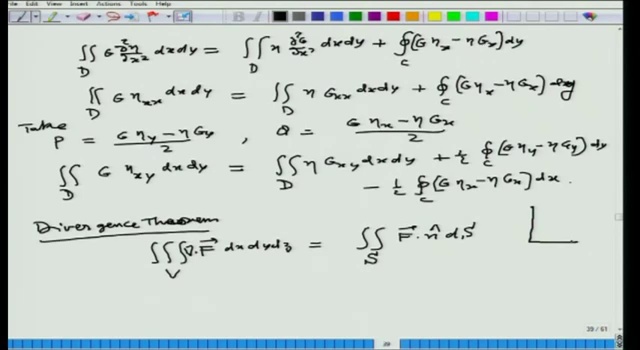 ∬_D G ∂²η/∂x² dxdy = ∬_D η ∂²G/∂x² dxdy + ∮_C (Gη_x − ηG_x) dy
∬_D G η_xx dxdy = ∬_D η G_xx dxdy + ∮_C (Gη_x − ηG_x) dy
Take P = (Gη_y − ηG_y)/2 , Q = (Gη_x − ηG_x)/2
∬_D G η_xy dxdy = ∬_D η G_xy dxdy + ½ ∮_C (Gη_y − ηG_y) dy
− ½ ∮_C (Gη_x − ηG_x) dx.
Divergence Theorem
∭_V ∇.F⃗ dxdydz = ∬_S F⃗.n̂ dS
29 / 61
29